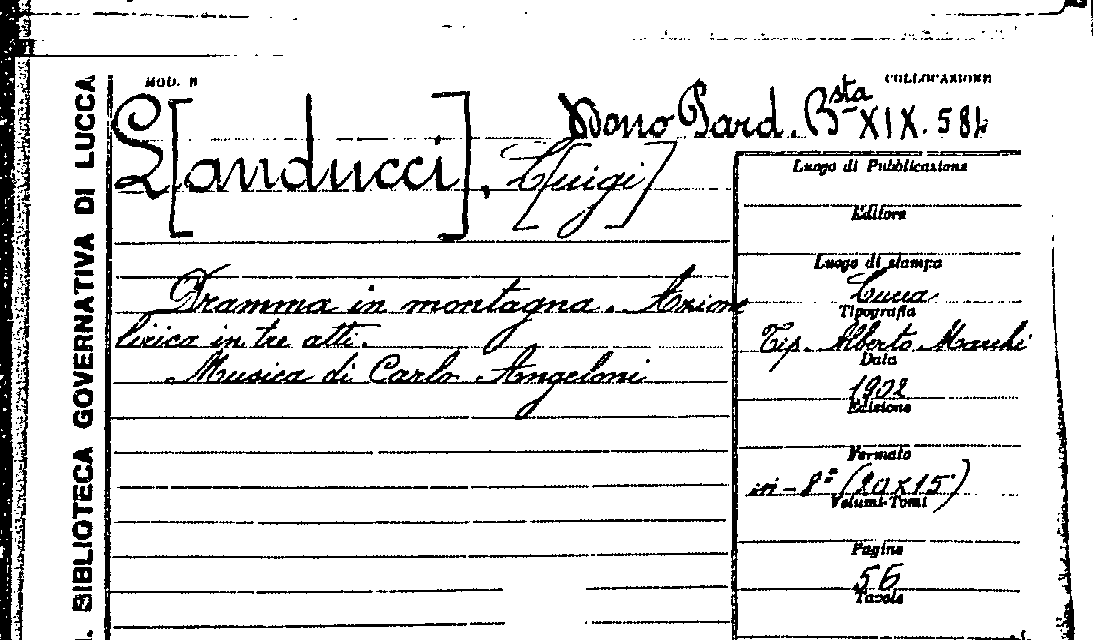 MOD. B
COLLOCAZIONE
Dono Pard. Bsta XIX. 584
L[anducci], L[uigi]
Dramma in montagna. Azione
lirica in tre atti.
Musica di Carlo Angeloni
Luogo di Pubblicazione
Editore
Luogo di stampa
Lucca
Tipografia
Tip. Alberto Marchi
Data
1902
Edizione
Formato
in-8º (20x15)
Volumi-Tomi
Pagine
56
Tavole
BIBLIOTECA GOVERNATIVA DI LUCCA